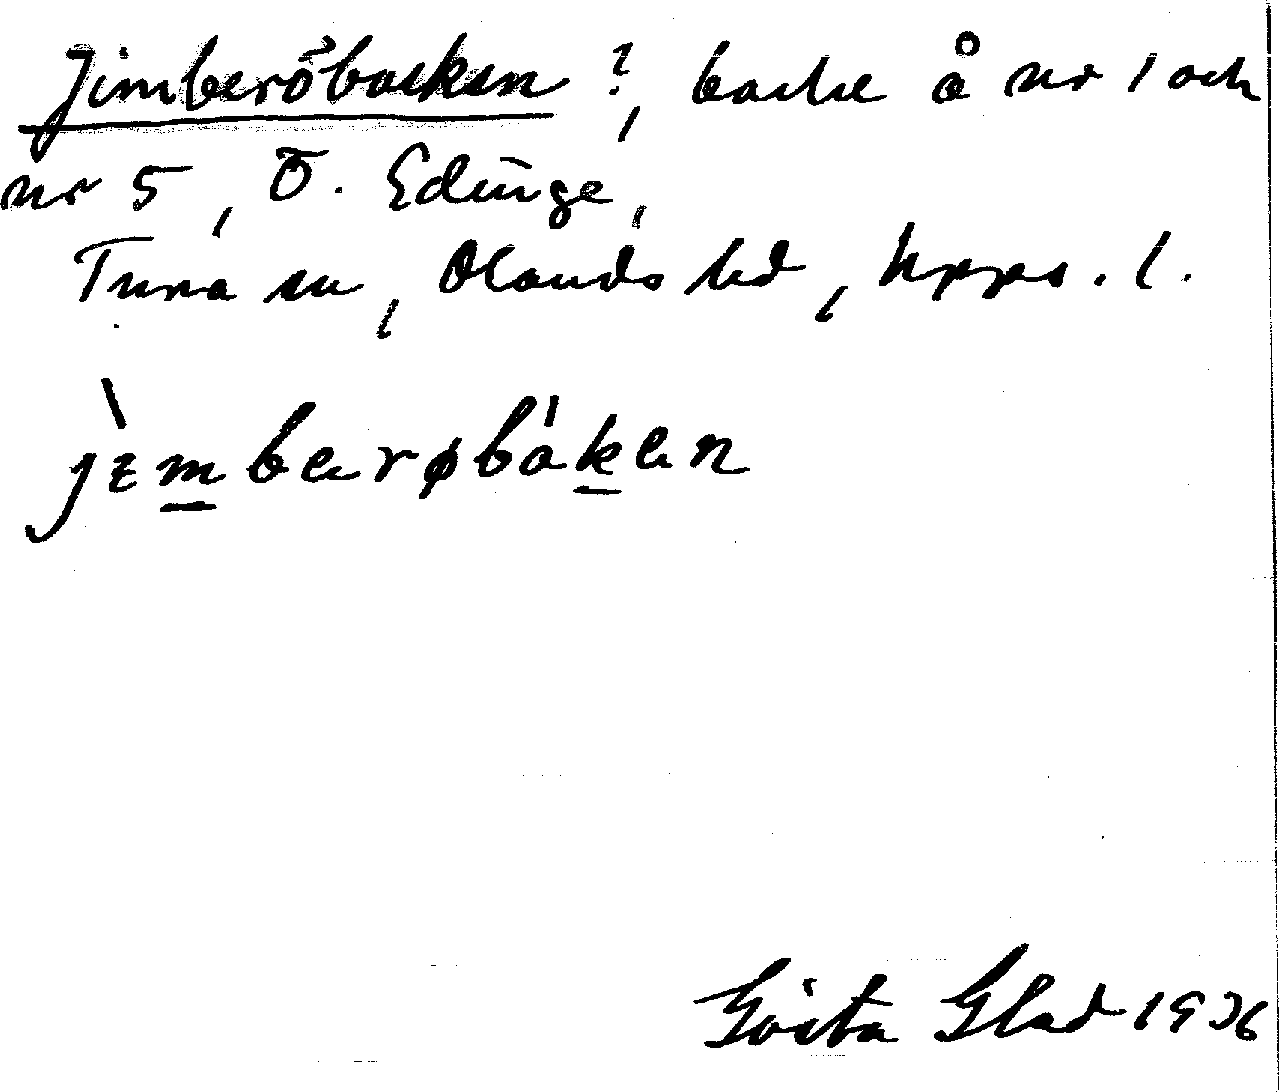 Jimberöbacken ?, backe å nr 1 och
nr 5, Ö. Edinge,
Tuna sn, Olands hd, Upps. l.
jìmberøbákен
Gösta Glad 1936